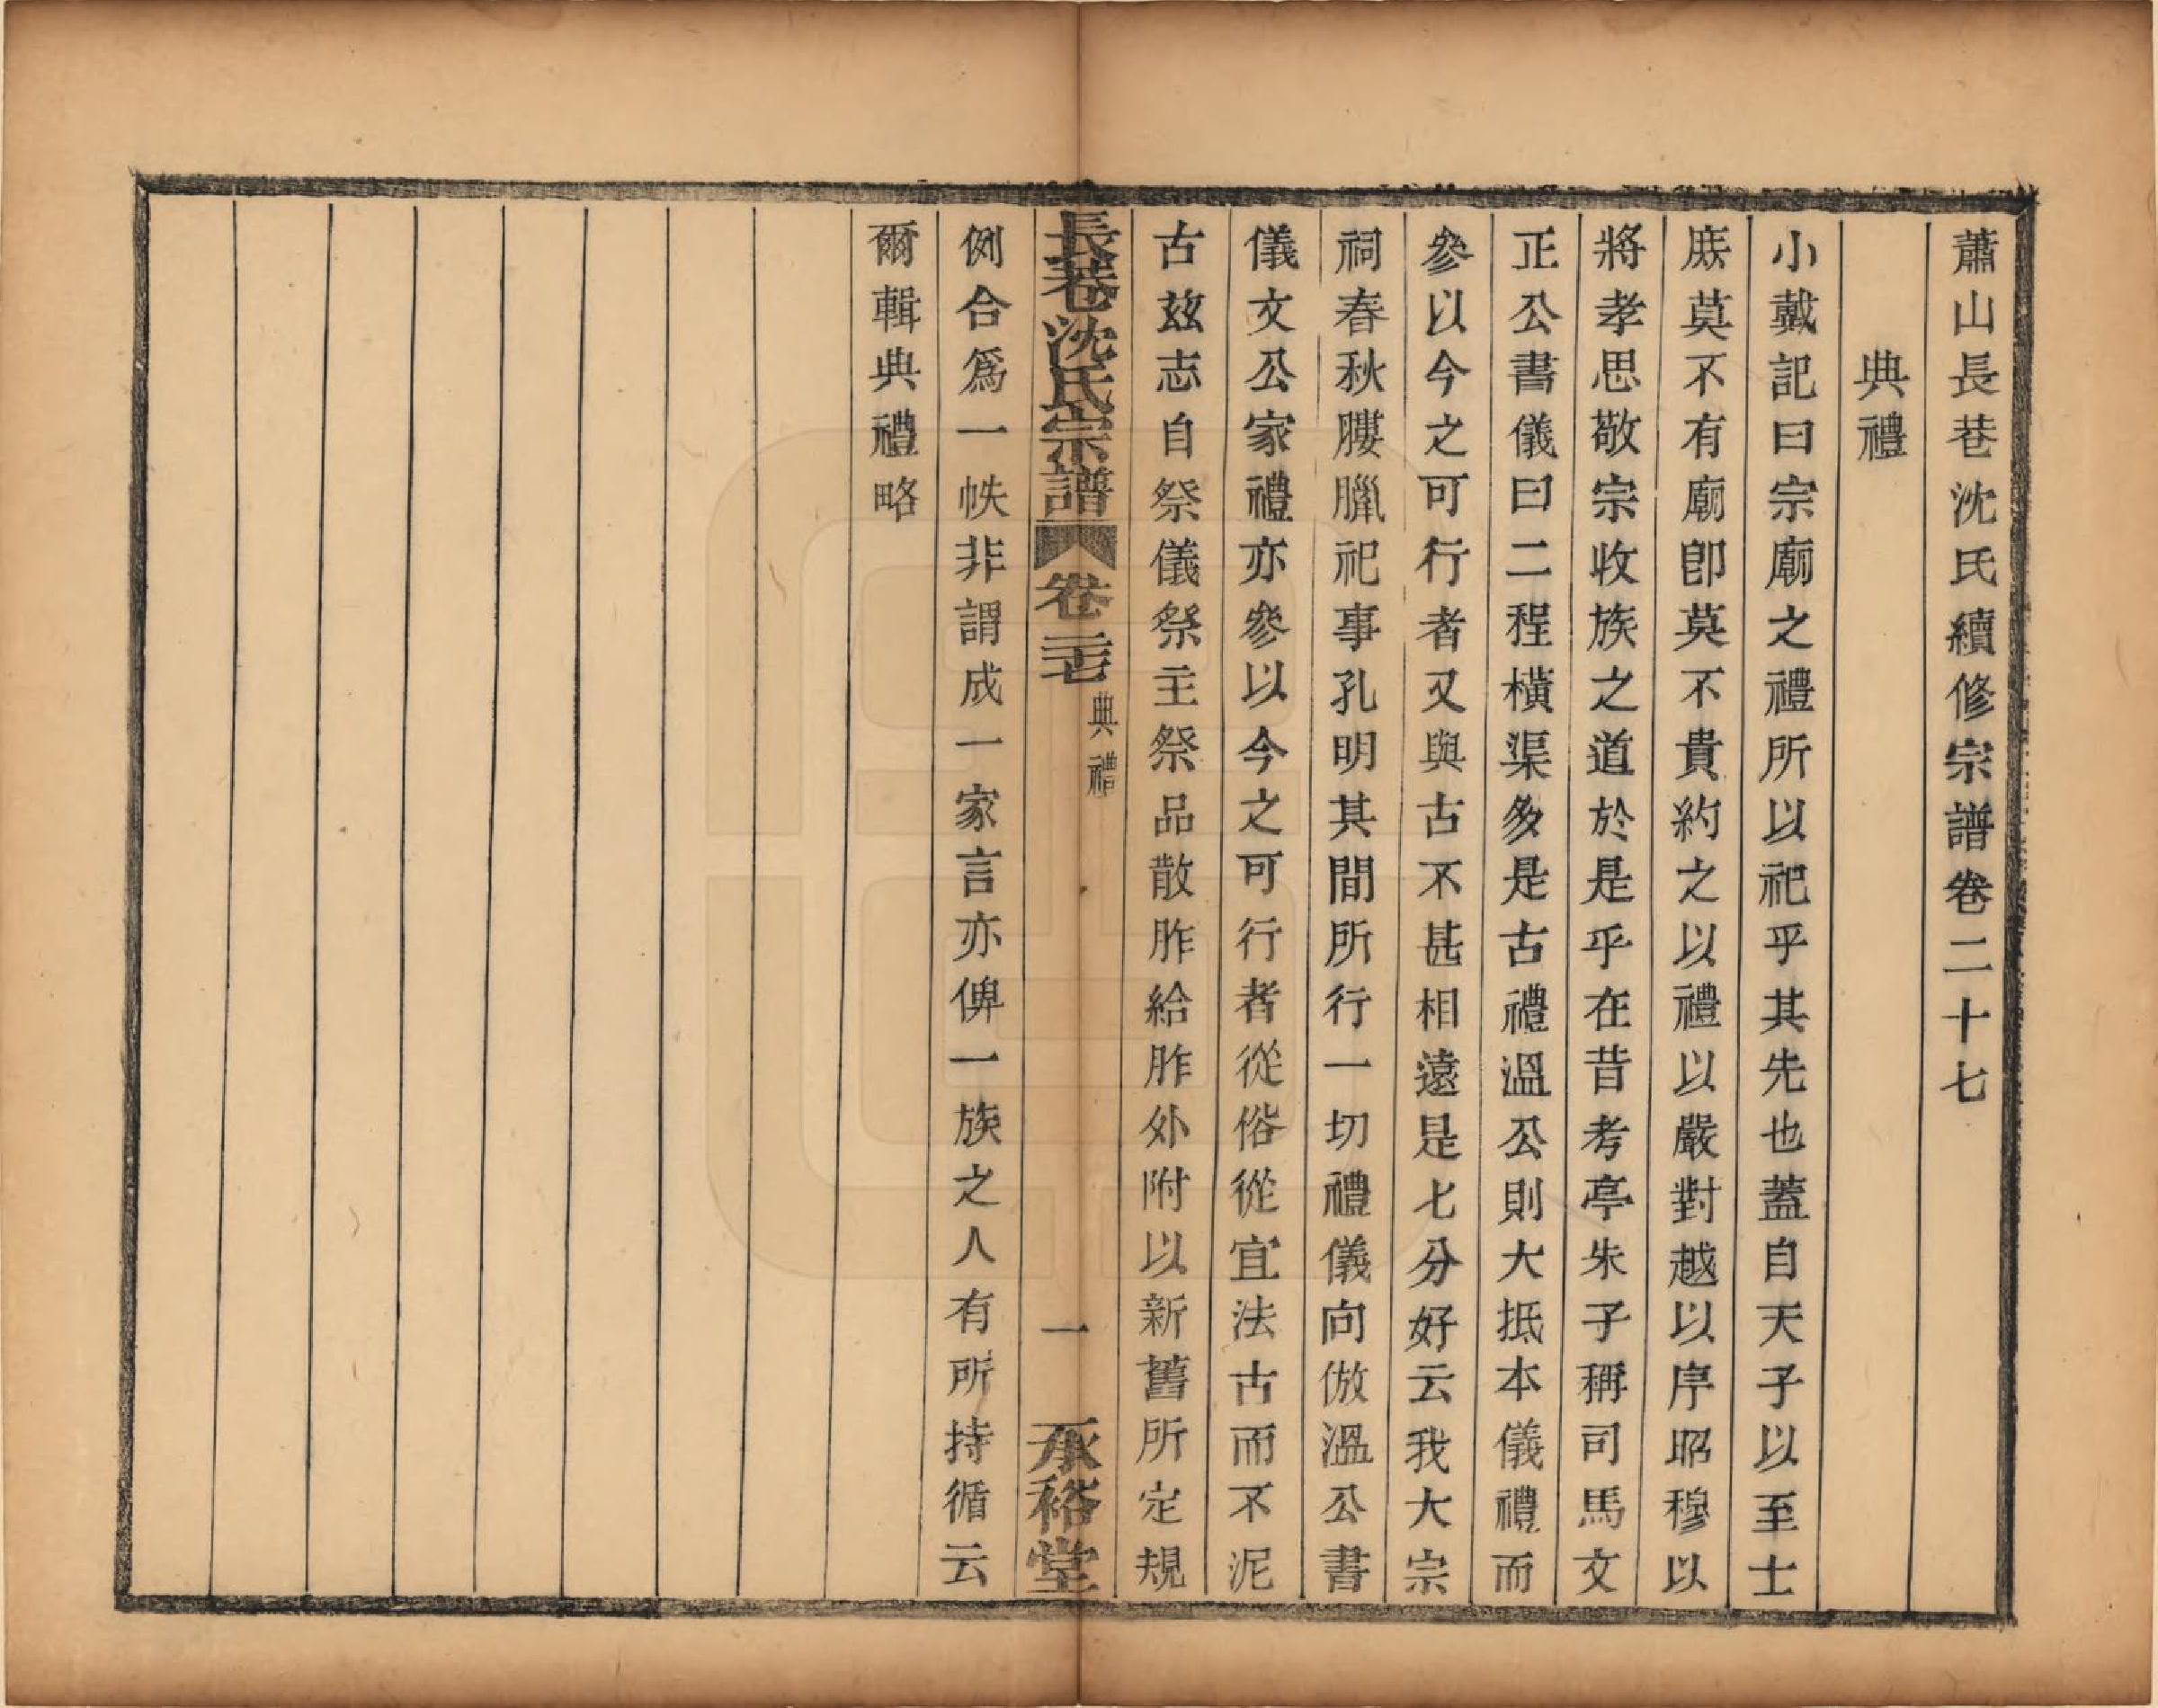 蕭山長巷沈氏續修宗譜卷二十七
典禮
小戴記曰宗廟之禮所以祀乎其先也蓋自天子以至士
庶莫不有廟卽莫不貴約之以禮以嚴對越以序昭穆以
將孝思敬宗收族之道於是乎在昔考亭朱子稱司馬文
正公書儀曰二程橫渠多是古禮溫公則大抵本儀禮而
參以今之可行者又與古不甚相遠是七分好云我大宗
祠春秋膢臘祀事孔明其間所行一切禮儀向倣溫公書
儀文公家禮亦參以今之可行者從俗從宜法古而不泥
古茲志自祭儀祭主祭品散胙給胙外附以新舊所定規
長巷沈氏宗譜 卷二七 典禮 一 承裕堂
例合爲一帙非謂成一家言亦俾一族之人有所持循云
爾輯典禮略